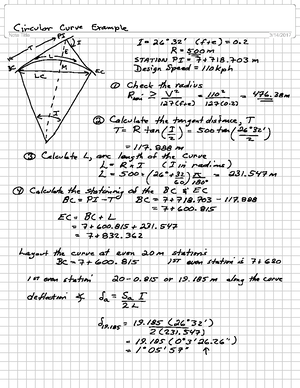 Circular Curve Example
PI
T
I
E
BC
M
Lc
EC
I
I = 26°32' (f+e) = 0.2
R = 500m
STATION PI = 7+718.703 m
Design Speed = 110 kph
① Check the radius
Rmin ≥ V² / 127(f+e) = 110² / 127(0.2) = 476.38m
② Calculate the tangent distance, T
T = R tan(I/2) = 500 tan(26°32'/2)
= 117.888 m
③ Calculate L, arc length of the curve
L = R × I (I in radians)
L = 500 × (26° + 32/60) π/180° = 231.547 m
④ Calculate the stationing of the BC & EC
BC = PI - T BC = 7+718.703 - 117.888
= 7+600.815
EC = BC + L
= 7+600.815 + 231.547
= 7+832.362
Layout the curve at even 20m stations
BC = 7+600.815 1ST even station is 7+620
1st even station 20-0.815 or 19.185 m along the curve
deflection ∡ δa = Sa I / 2L
δ19.185 = 19.185 (26°32') / 2(231.547)
= 19.185 (0°3'26.26")
= 1°05'57"